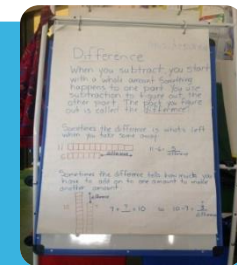 Difference
When you subtract, you start
with a whole amount. Something
happens to one part. You use
subtraction to figure out the
other part. The part you figure
out is called the difference!
Sometimes the difference is what's left
when you take some away.
Sometimes the difference tells how much you
have to add on to one amount to make
another amount.
7 + ? = 10 so 10 - 7 = 3